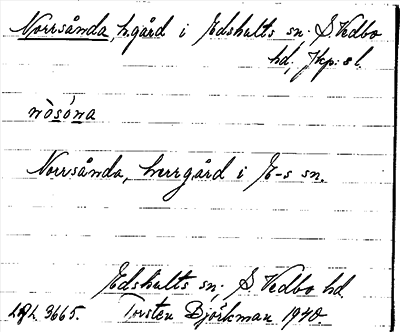 Norrsånda, h.gård i Edshults sn. S. Vedbo
hd, Jkp:s l.
nòsóna
Norrsånda, herrgård i E-s sn.
Edshults sn, S Vedbo hd
3665. Torsten Björkman 1940